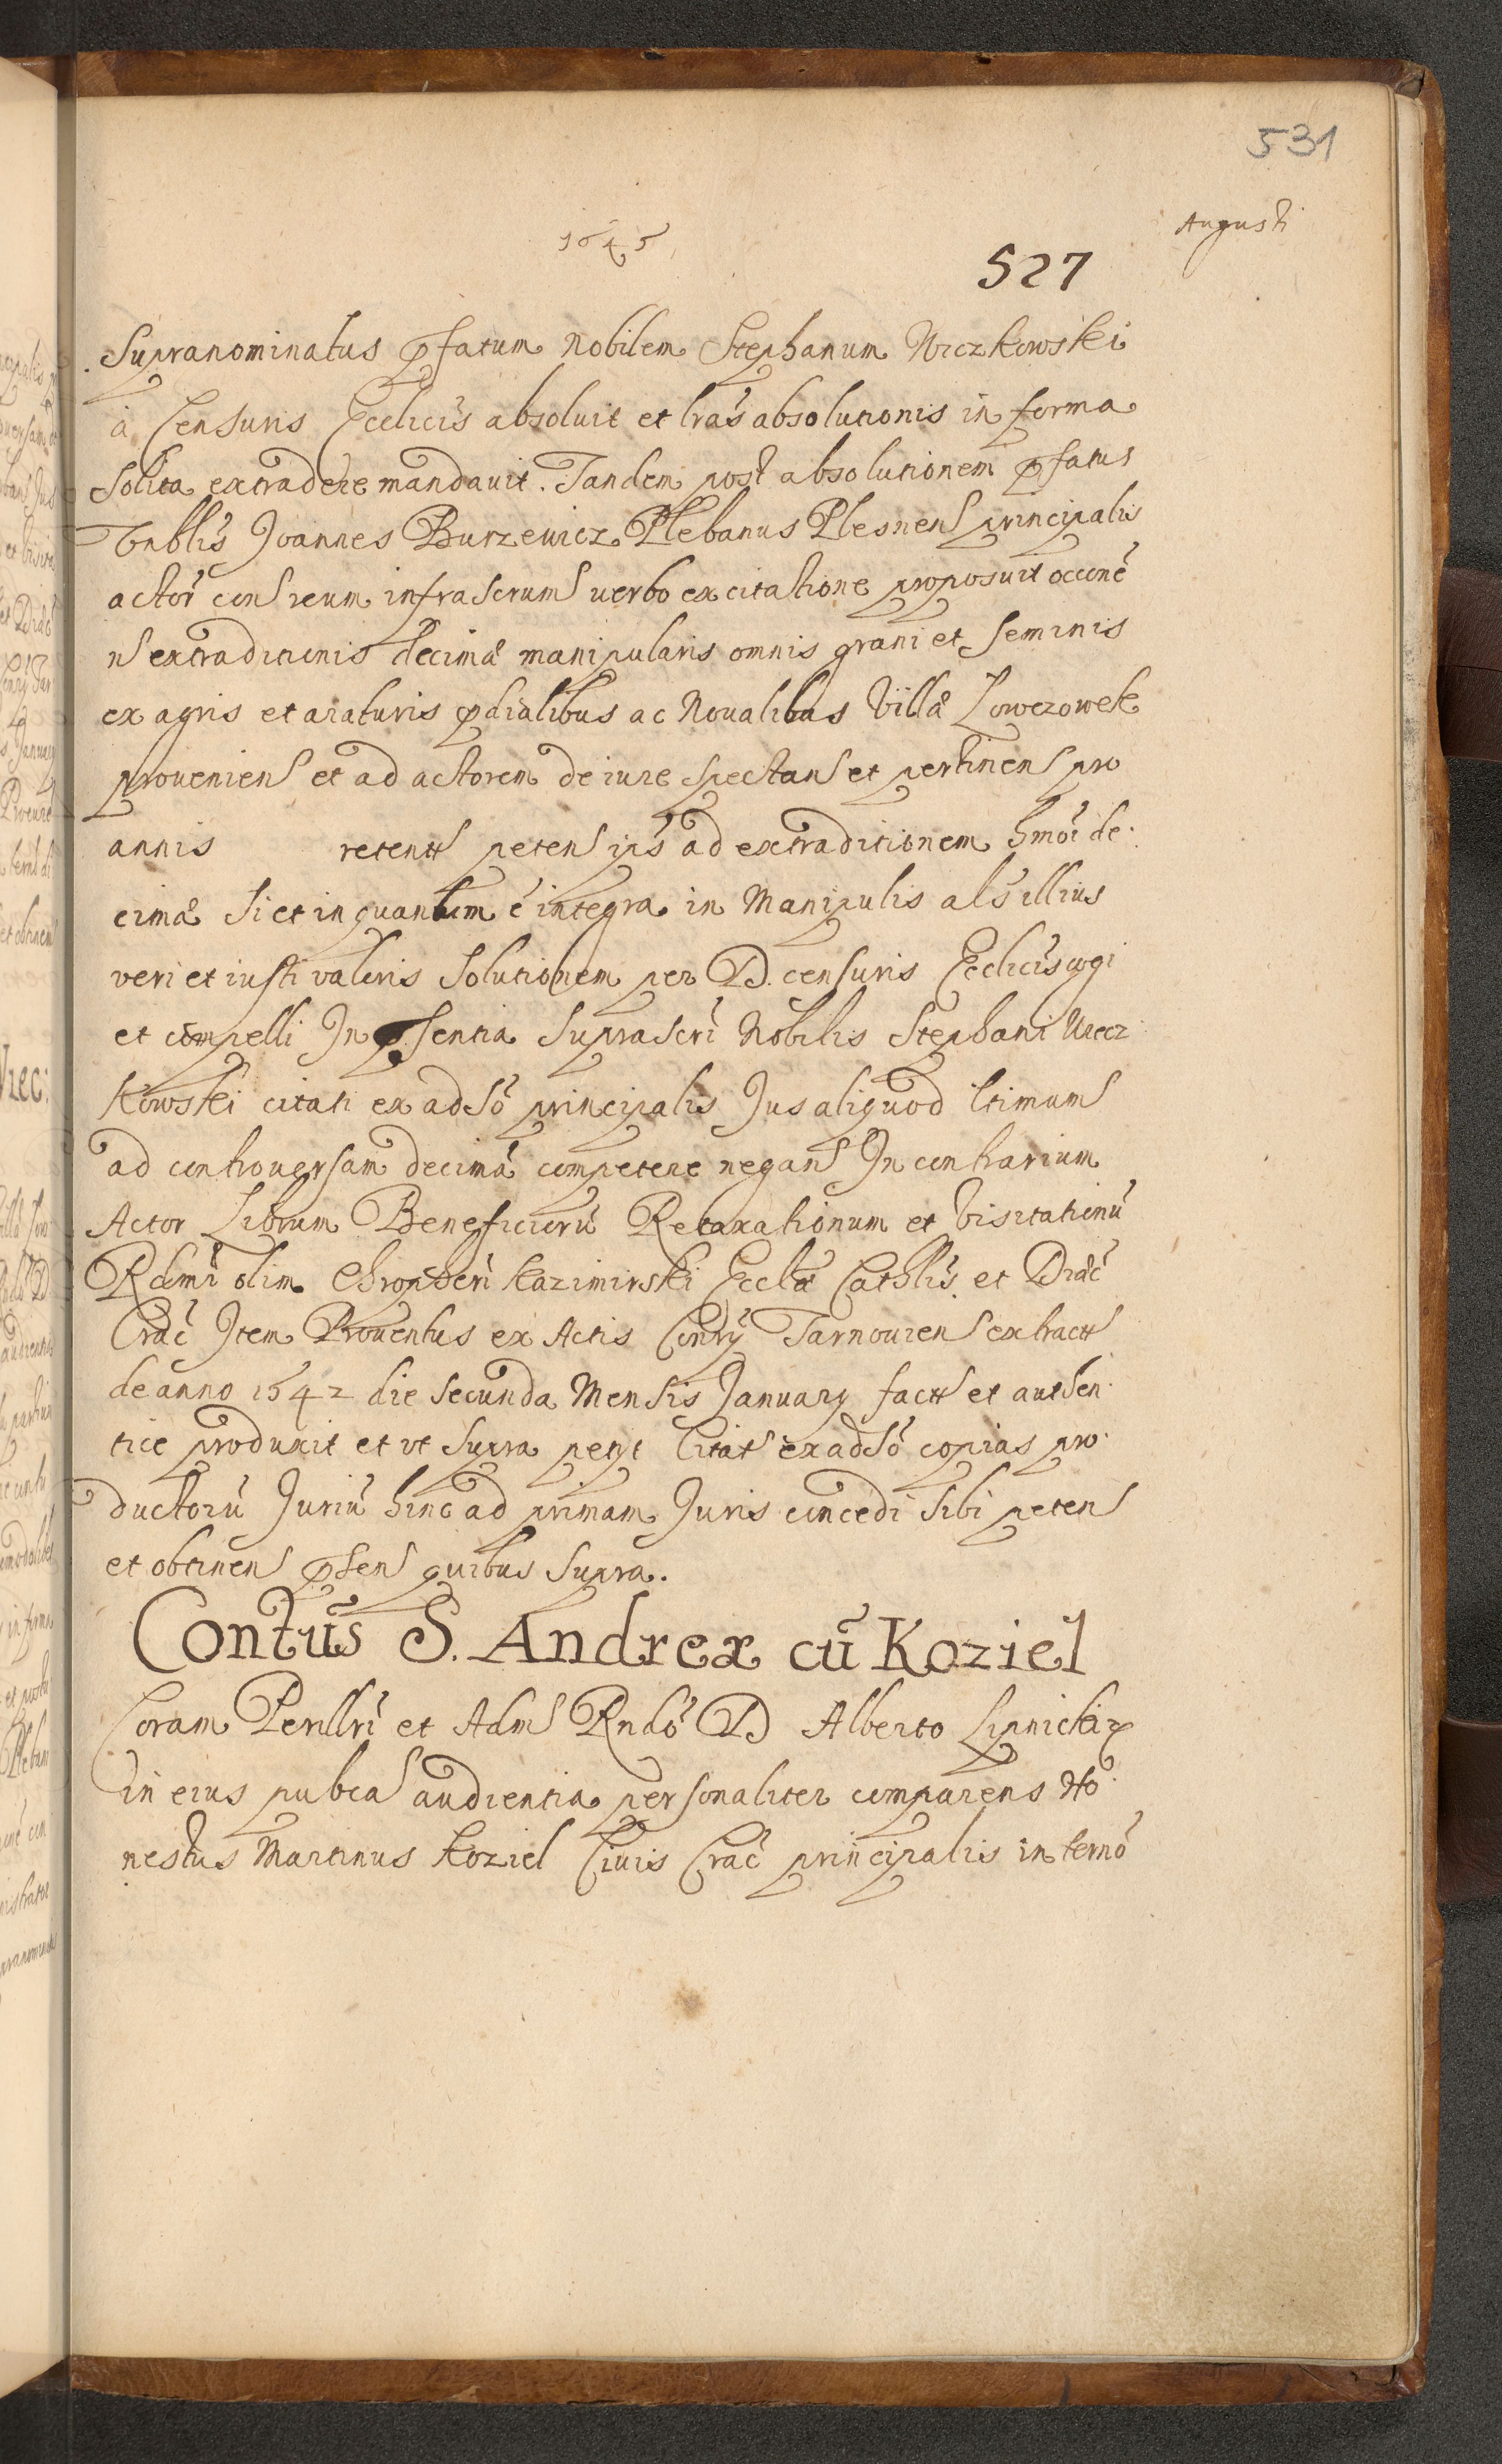 531
Augusti
1645
527
Supranominatus pfatum Nobilem Stephanum Wiczkowski
à Censuris Ecclicis absoluit et lras absolutionis in forma
Solita extradere mandauit. Tandem post absolutionem pfatus
Vnblis Joannes Burzewicz Plebanus Plesnens principalis
actor cons reum infrascrums verbo ex citatione proposuit occone
ns extraditionis decimæ manipularis omnis grani et Seminis
ex agris et araturis pdialibus ac Noualibus Villæ Lowczowek
proueniens et ad actorem de iure spectans et pertinens pro
annis retent petens ips ad extraditionem hmoi de
cimæ si et in quantum é integra in Manipulis als illius
veri et iusti valoris Solutionem per D. censuris Ecclicis cogi
et compelli In psentia Suprascri Nobilis Stephani Wiecz
kowski citati ex adso principalis Jus aliquod ltimum
ad controuersam decimã competere negans In contrarium
Actor Librum Beneficiorũ Retaxationum et Visitationũ
Rdmi olim Chropheri Kazimirski Eccliæ Cathlis et Diæc
Crac Item Prouentus ex Actis Contry Tarnouien extract
de anno 1542 die Secunda Mensis January fact et authen
tice produxit et vt Supra petyt Citat ex adso copias pro
ductorũ Juriũ hinc ad primam Juris concedi Sibi petens
et obtinens psen quibus Supra.
Contũs S. Andreæ cũ Koziel
Coram Perillri et Adm Rndo D Alberto Lipnicki
in eius pubca audientia personaliter comparens Ho
nestus Martinus Koziel Ciuis Crac principalis in termo